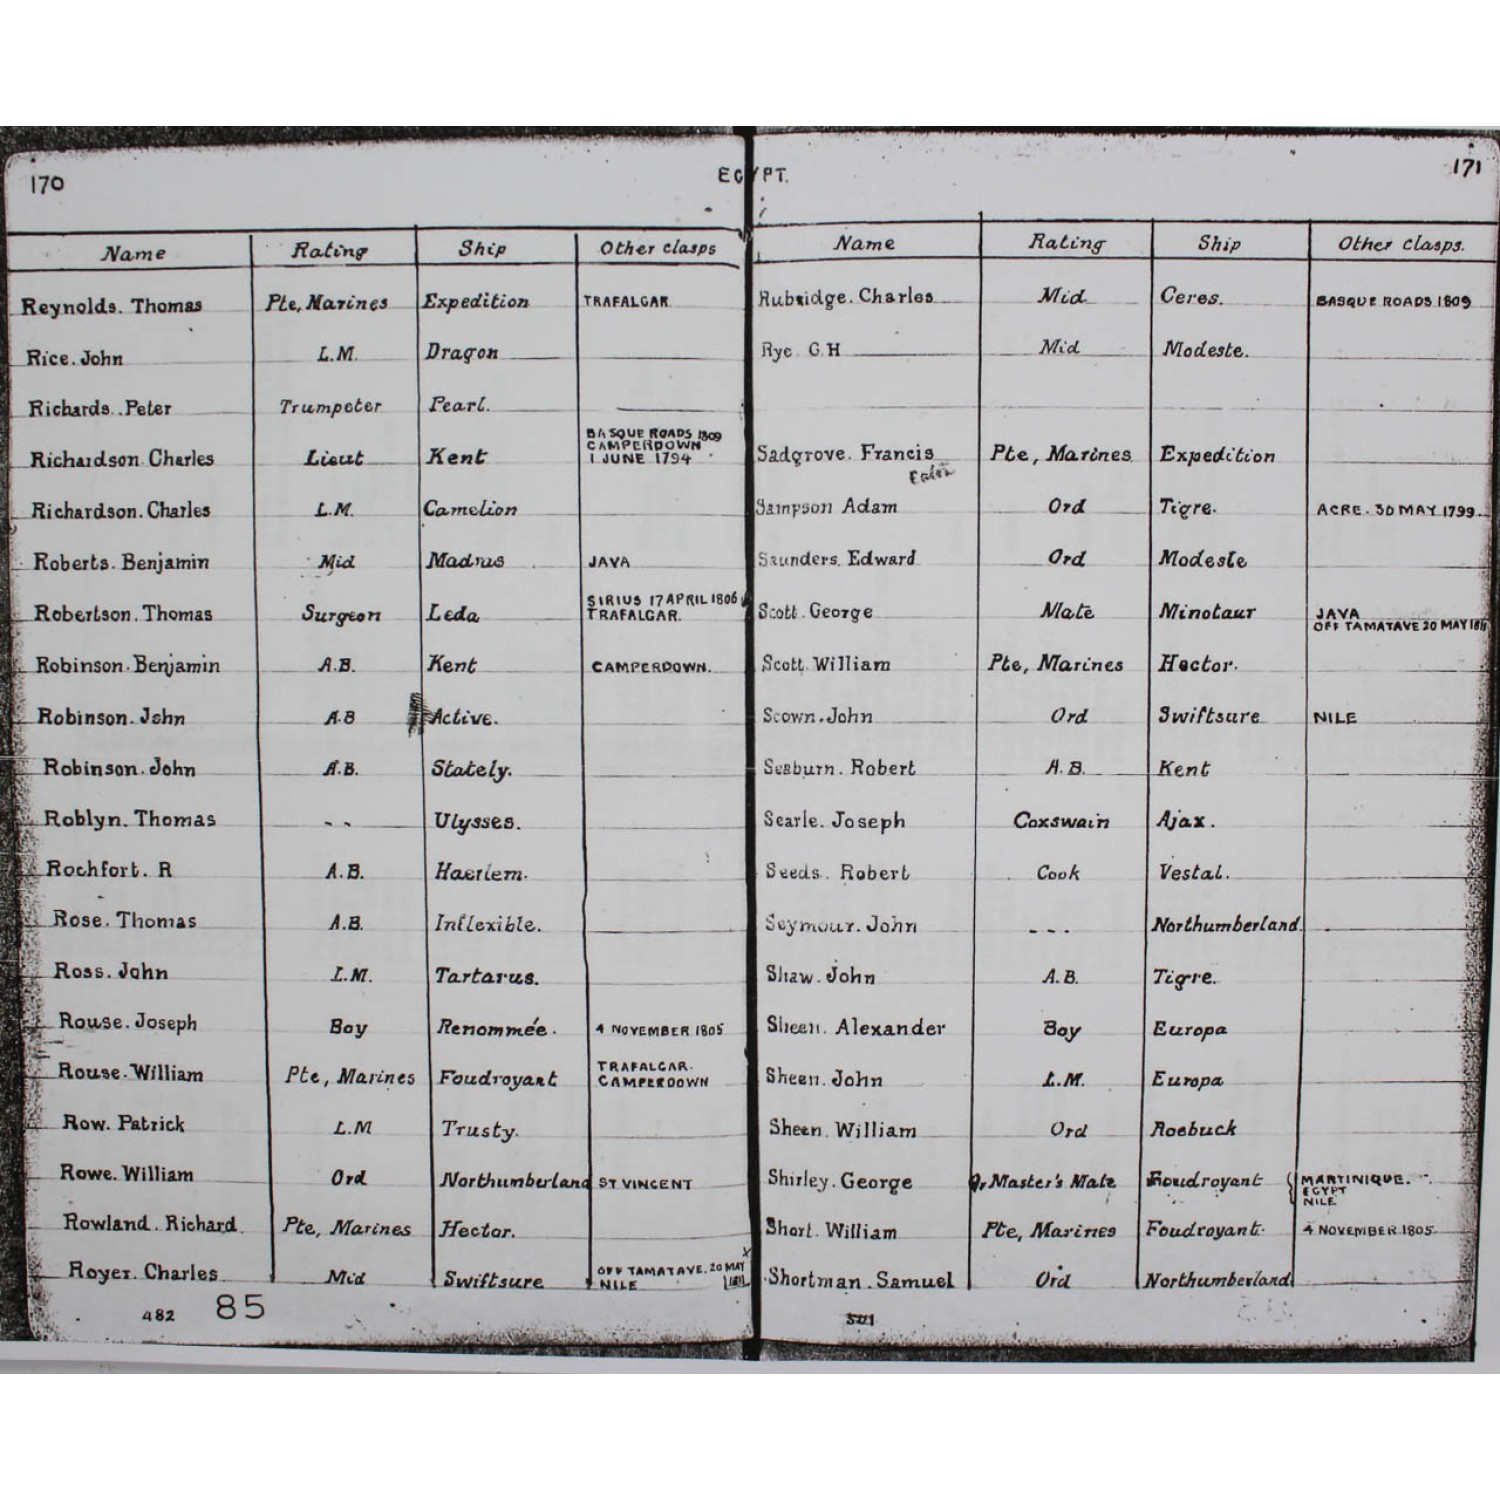 170
EGYPT.
Name Rating Ship Other clasps
Reynolds. Thomas Pte, Marines Expedition TRAFALGAR
Rice. John L.M. Dragon
Richards. Peter Trumpeter Pearl.
Richardson Charles Lieut Kent BASQUE ROADS 1809
CAMPERDOWN
1 JUNE 1794
Richardson. Charles L.M. Camelion
Roberts. Benjamin Mid Madras JAVA
Robertson. Thomas Surgeon Leda SIRIUS 17 APRIL 1806
TRAFALGAR.
Robinson. Benjamin A.B. Kent CAMPERDOWN.
Robinson. John A.B Active.
Robinson. John A.B. Stately.
Roblyn. Thomas - - Ulysses.
Rochfort. R A.B. Haerlem.
Rose. Thomas A.B. Inflexible.
Ross. John L.M. Tartarus.
Rouse. Joseph Boy Renommée. 4 NOVEMBER 1805
Rouse. William Pte, Marines Foudroyant TRAFALGAR.
CAMPERDOWN
Row. Patrick L.M Trusty.
Rowe. William Ord Northumberland ST VINCENT
Rowland. Richard Pte, Marines Hector.
Royer. Charles Mid Swiftsure OFF TAMATAVE. 20 MAY 1811
NILE
482 85
171
Name Rating Ship Other clasps.
Rubridge. Charles Mid Ceres. BASQUE ROADS 1809
Rye G.H Mid Modeste.
Sadgrove. Francis Pte, Marines Expedition
Sampson Adam Ord Tigre. ACRE. 30 MAY 1799
Saunders. Edward Ord Modeste
Scott. George Mate Minotaur JAVA
OFF TAMATAVE 20 MAY 1811
Scott. William Pte, Marines Hector.
Scown. John Ord Swiftsure NILE
Seaburn. Robert A.B. Kent
Searle. Joseph Coxswain Ajax.
Seeds. Robert Cook Vestal.
Seymour. John - - - Northumberland
Shaw. John A.B. Tigre.
Sheen. Alexander Boy Europa
Sheen. John L.M. Europa
Sheen. William Ord Roebuck
Shirley. George Master's Mate Foudroyant MARTINIQUE.
EGYPT
NILE
Short. William Pte, Marines Foudroyant. 4 NOVEMBER 1805.
Shortman. Samuel Ord Northumberland